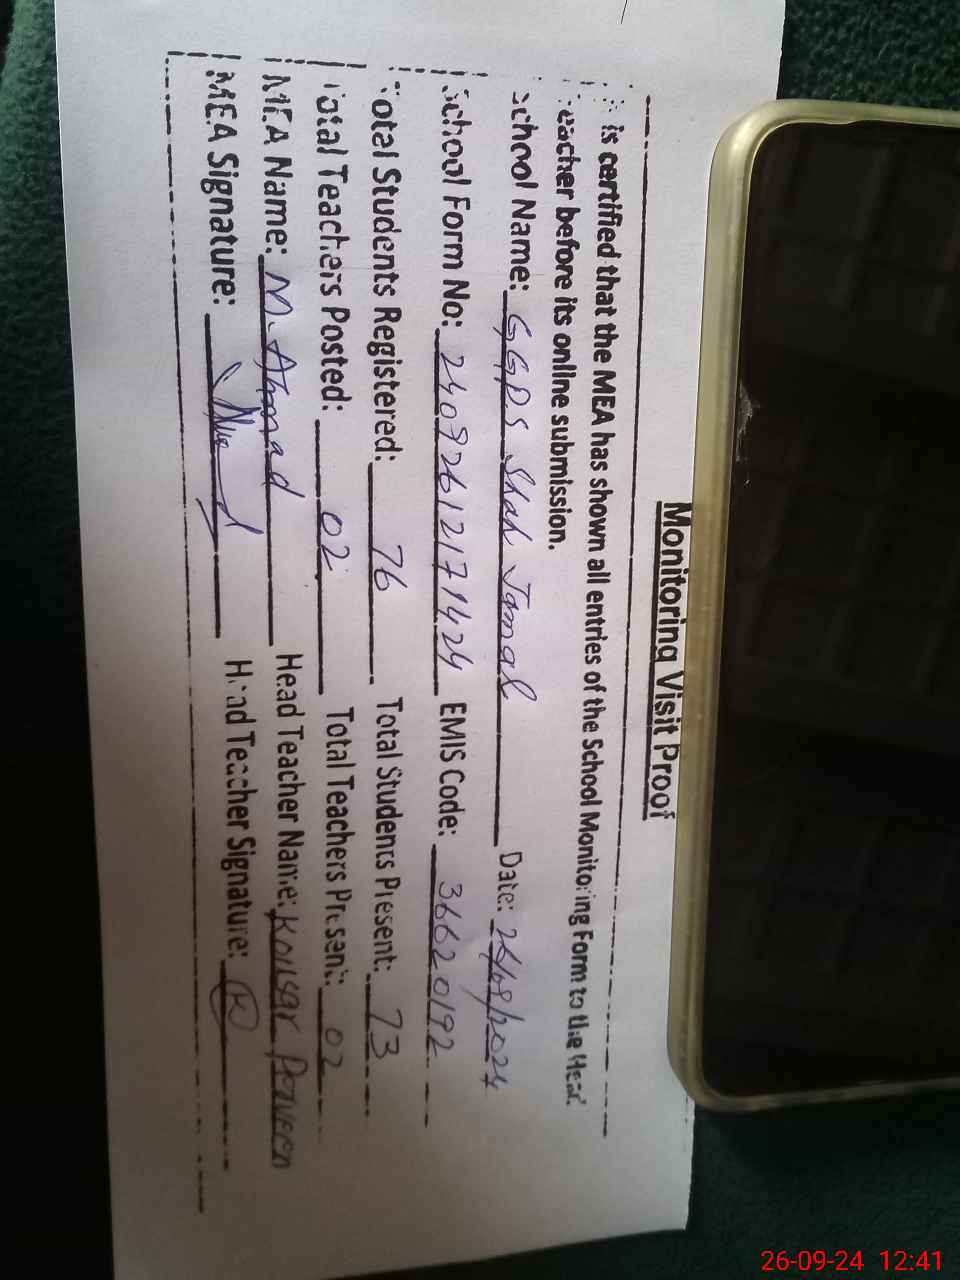 Monitoring Visit Proof
is certified that the MEA has shown all entries of the School Monitoring Form to the Head
Teacher before its online submission.
School Name: GGPS Shah Jamal Date: 26/09/2024
School Form No: 24092612171424 EMIS Code: 36620192
Total Students Registered: 76 Total Students Present: 73
Total Teachers Posted: 02 Total Teachers Present: 02
MEA Name: M. Ahmad Head Teacher Name: Kousar Parveen
MEA Signature: Head Teacher Signature:
26-09-24 12:41